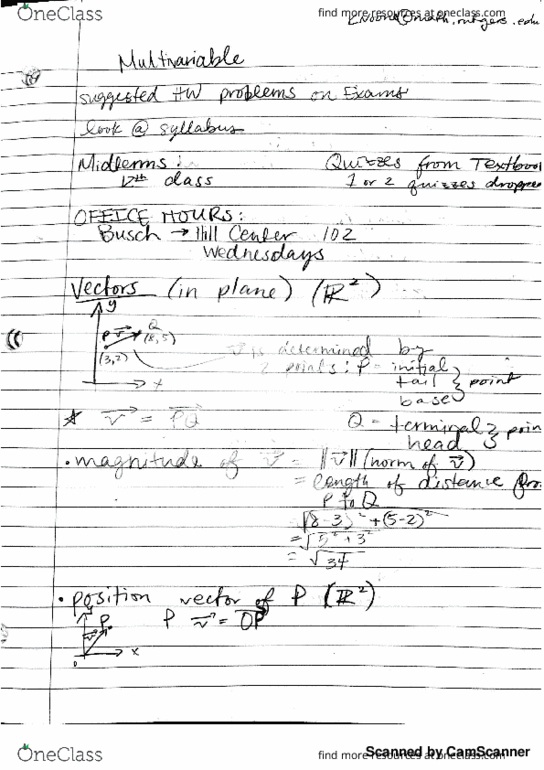 OneClass
find more resources at oneclass.com
@math.rutgers.edu
Multivariable
suggested HW problems on Exams
look @ syllabus
Midterms: Quizzes from Textbook
12th class 1 or 2 quizzes dropped
OFFICE HOURS:
Busch → Hill Center 102
Wednesdays
Vectors (in plane) (ℝ²)
y
P v⃗ Q
(8,5)
(3,2)
x
v⃗ is determined by
2 points: P - initial
tail } point
base
* v⃗ = PQ⃗
Q - terminal } poin
head
• magnitude of v⃗ = ||v⃗|| (norm of v⃗)
= length of distance fro
P to Q
√(8-3)² + (5-2)²
= √5² + 3²
= √34
• position vector of P (ℝ²)
P v⃗ = OP⃗
P
v⃗
0 x
OneClass
find more resources at oneclass.com
Scanned by CamScanner